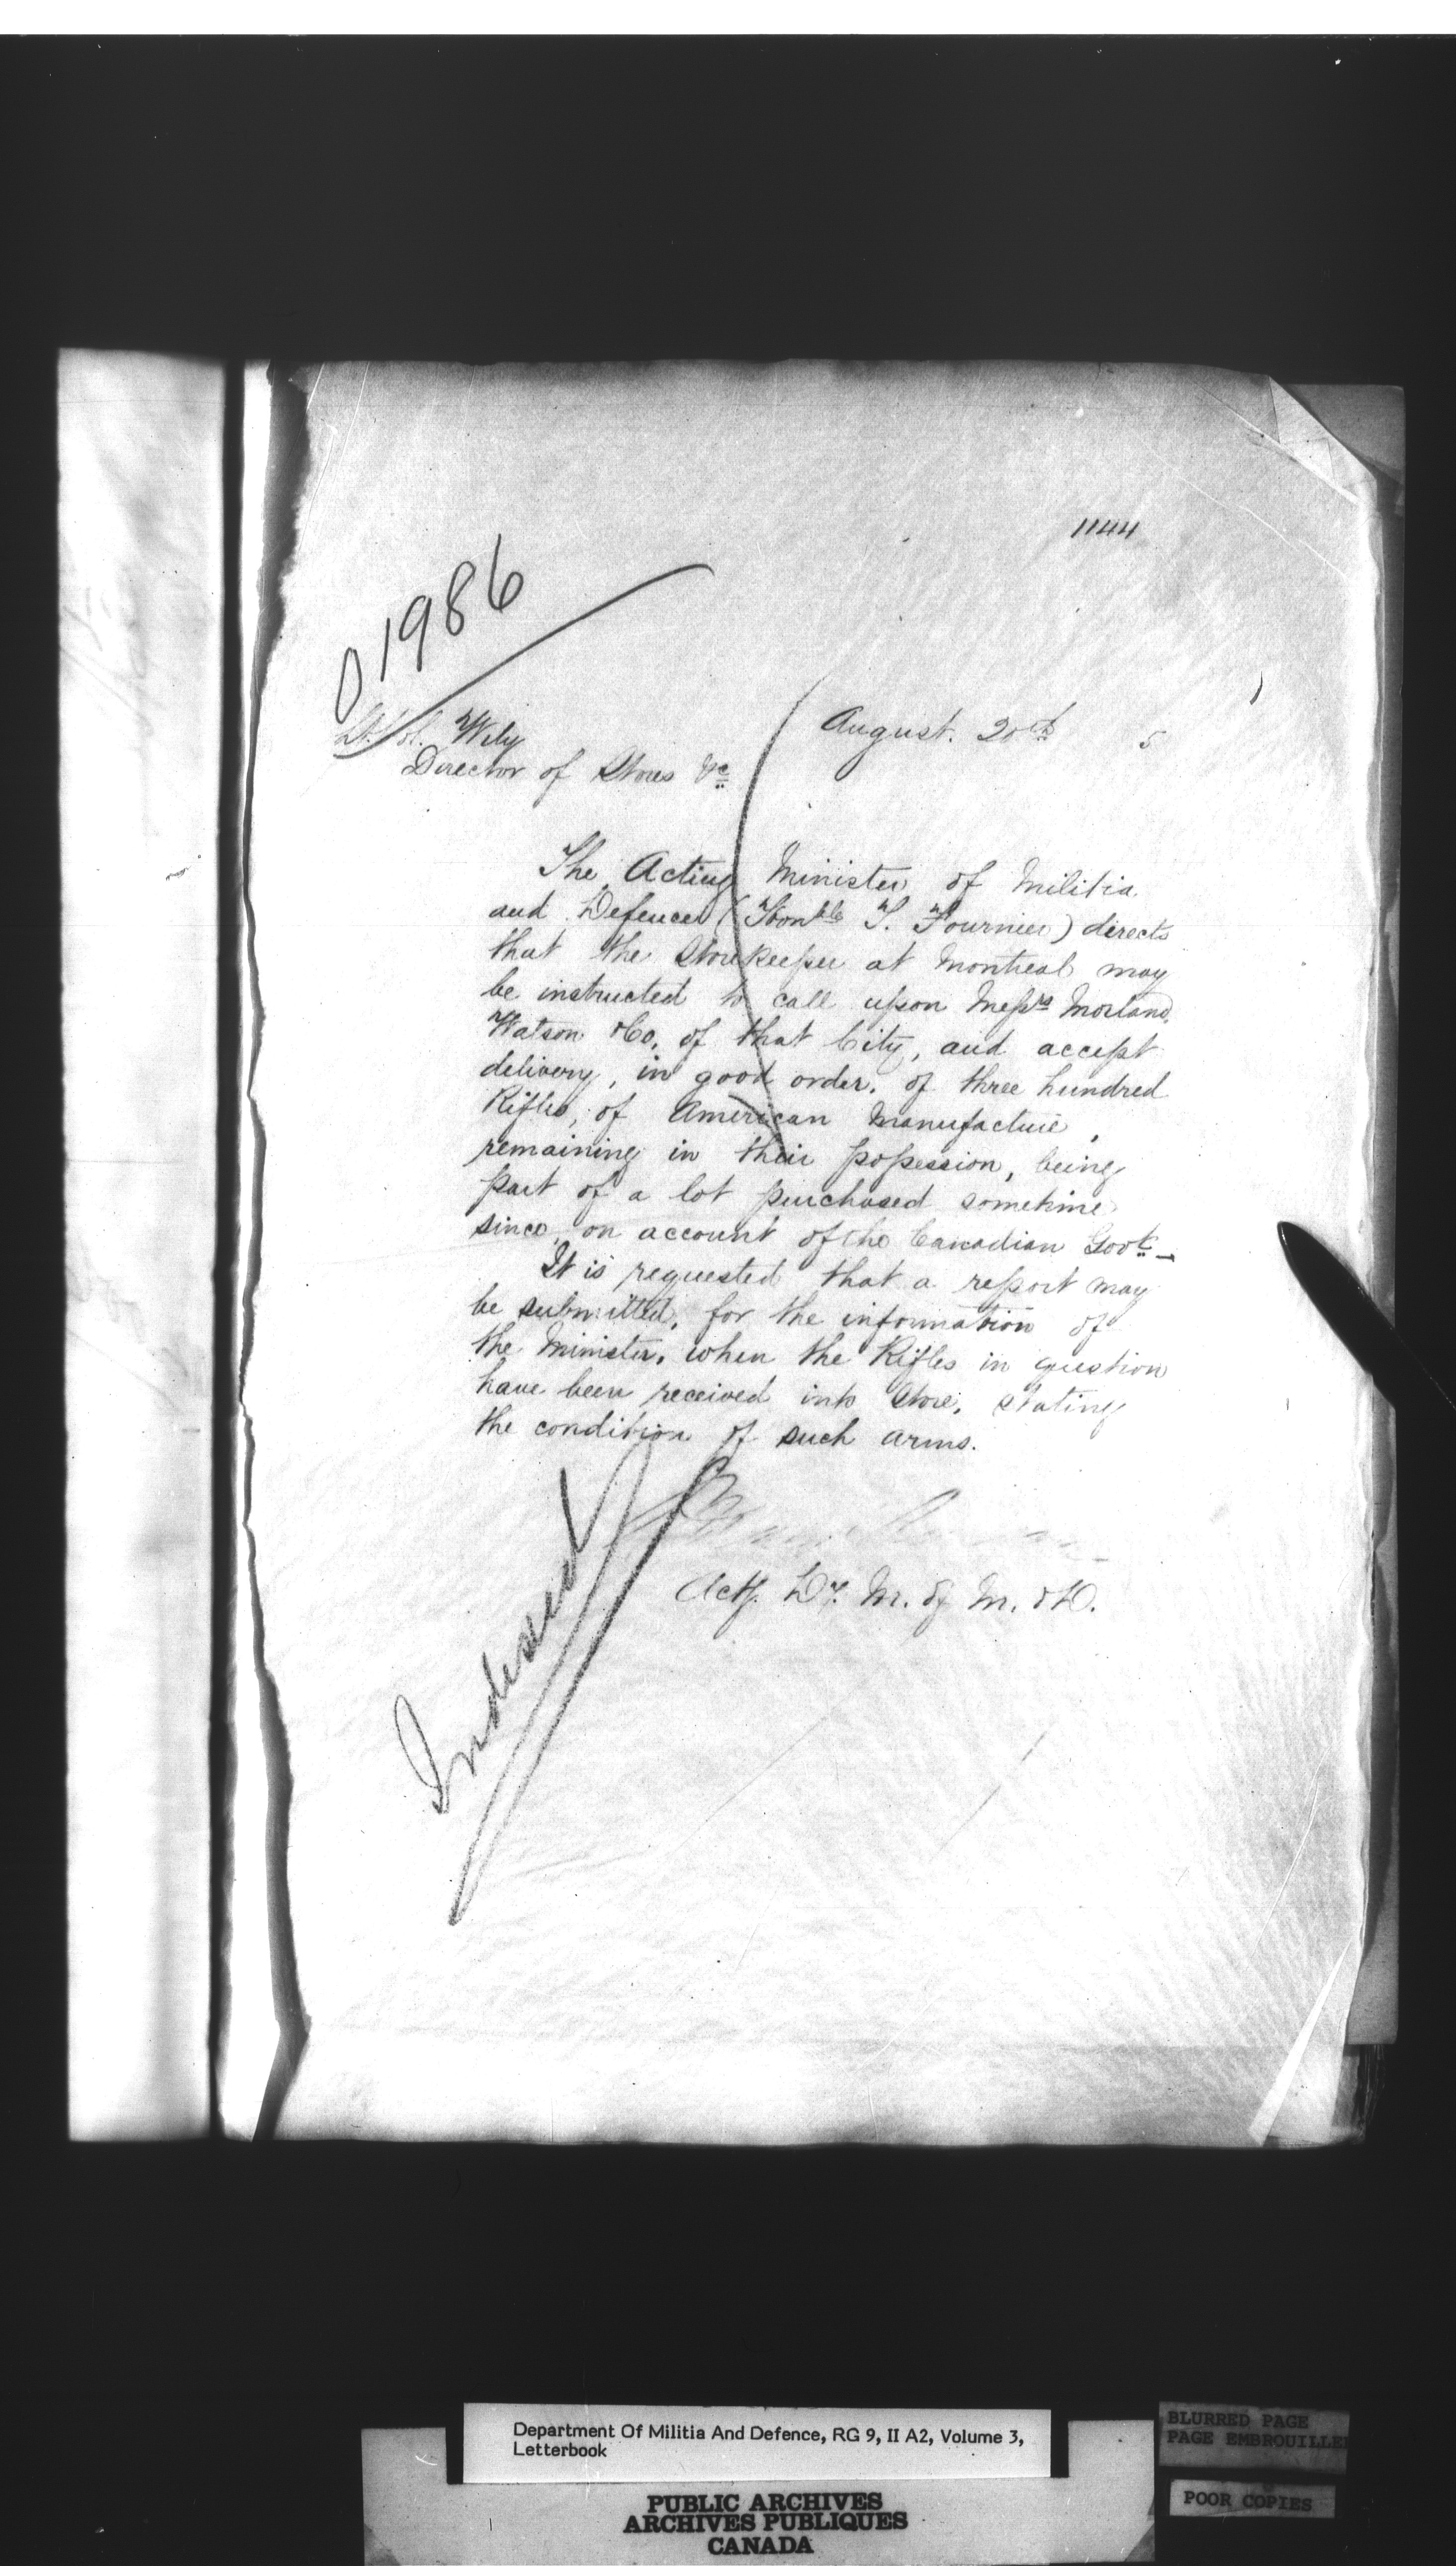 1144
01986
Lt. Col. Wily
Director of Stores &c
August. 20th 5
The Acting Minister of Militia
and Defence (Honble T. Fournier) directs
that the Storekeeper at Montreal may
be instructed to call upon Messrs Morland,
Watson &Co. of that City, and accept
delivery, in good order, of three hundred
Rifles, of American Manufacture,
remaining in their possession, being
part of a lot purchased sometime
since, on account of the Canadian Govt.
It is requested that a report may
be submitted, for the information of
the Minister, when the Rifles in question
have been received into Store, stating
the condition of such arms.
Actg. Dy. M. of M. & D.
Indexed
Department Of Militia And Defence, RG 9, II A2, Volume 3,
Letterbook
PUBLIC ARCHIVES
ARCHIVES PUBLIQUES
CANADA
BLURRED PAGE
PAGE EMBROUILLEE
POOR COPIES